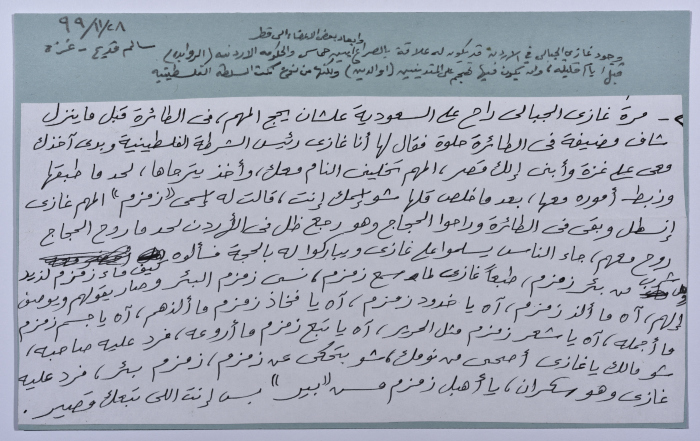 ٩٩/١١/٢٨
وإبعاد بعض الأعضاء إلى قطر
سالم قديح - غزة
وجود غازي الجبالي في الأردن قد يكون له علاقة بالصراع بين حماس والحكومة الأردنية
قبل أيام قليلة، ولكنها من نوع نكت السلطة الفلسطينية
- مرة غازي الجبالي راح على السعودية علشان يحج المهم، في الطائرة قبل ما ينزل
شاف مضيفة في الطائرة حلوة فقال لها أنا غازي رئيس الشرطة الفلسطينية وبدي آخذك
معي على غزة وأبني إلك قصر، المهم تخليني أنام معك، وأخذ يترجاها، لحد ما طبقها
وزبط أموره معها، بعد ما خلص قلها شو إسمك إنت، قالت له إسمي "زمزم" المهم غازي
إنسطل وبقى في الطائرة وراحوا الحجاج وهو رجع ظل في الأردن لحد ما روح الحجاج
روح معهم، جاء الناس يسلموا على غازي ويباركوا له بالحجة فسألوه كيف ماء زمزم لذيذ
من بئر زمزم، طبعاً غازي لما سمع زمزم، نسي زمزم البئر وصار يقولهم ويوصف
إلهم، آه ما ألذ زمزم، آه يا خدود زمزم، آه يا فخاذ زمزم ما ألذهم، آه يا جسم زمزم
ما أجمله، آه يا شعر زمزم مثل الحرير، آه يا نبع زمزم ما أروعه، فرد عليه صاحبه،
شو مالك يا غازي أصحى من نومك، شو بتحكي عن زمزم، زمزم بئر، فرد عليه
غازي وهو سكران، يا أهبل زمزم مش "بير" بس إنت اللي نبعك قصير.